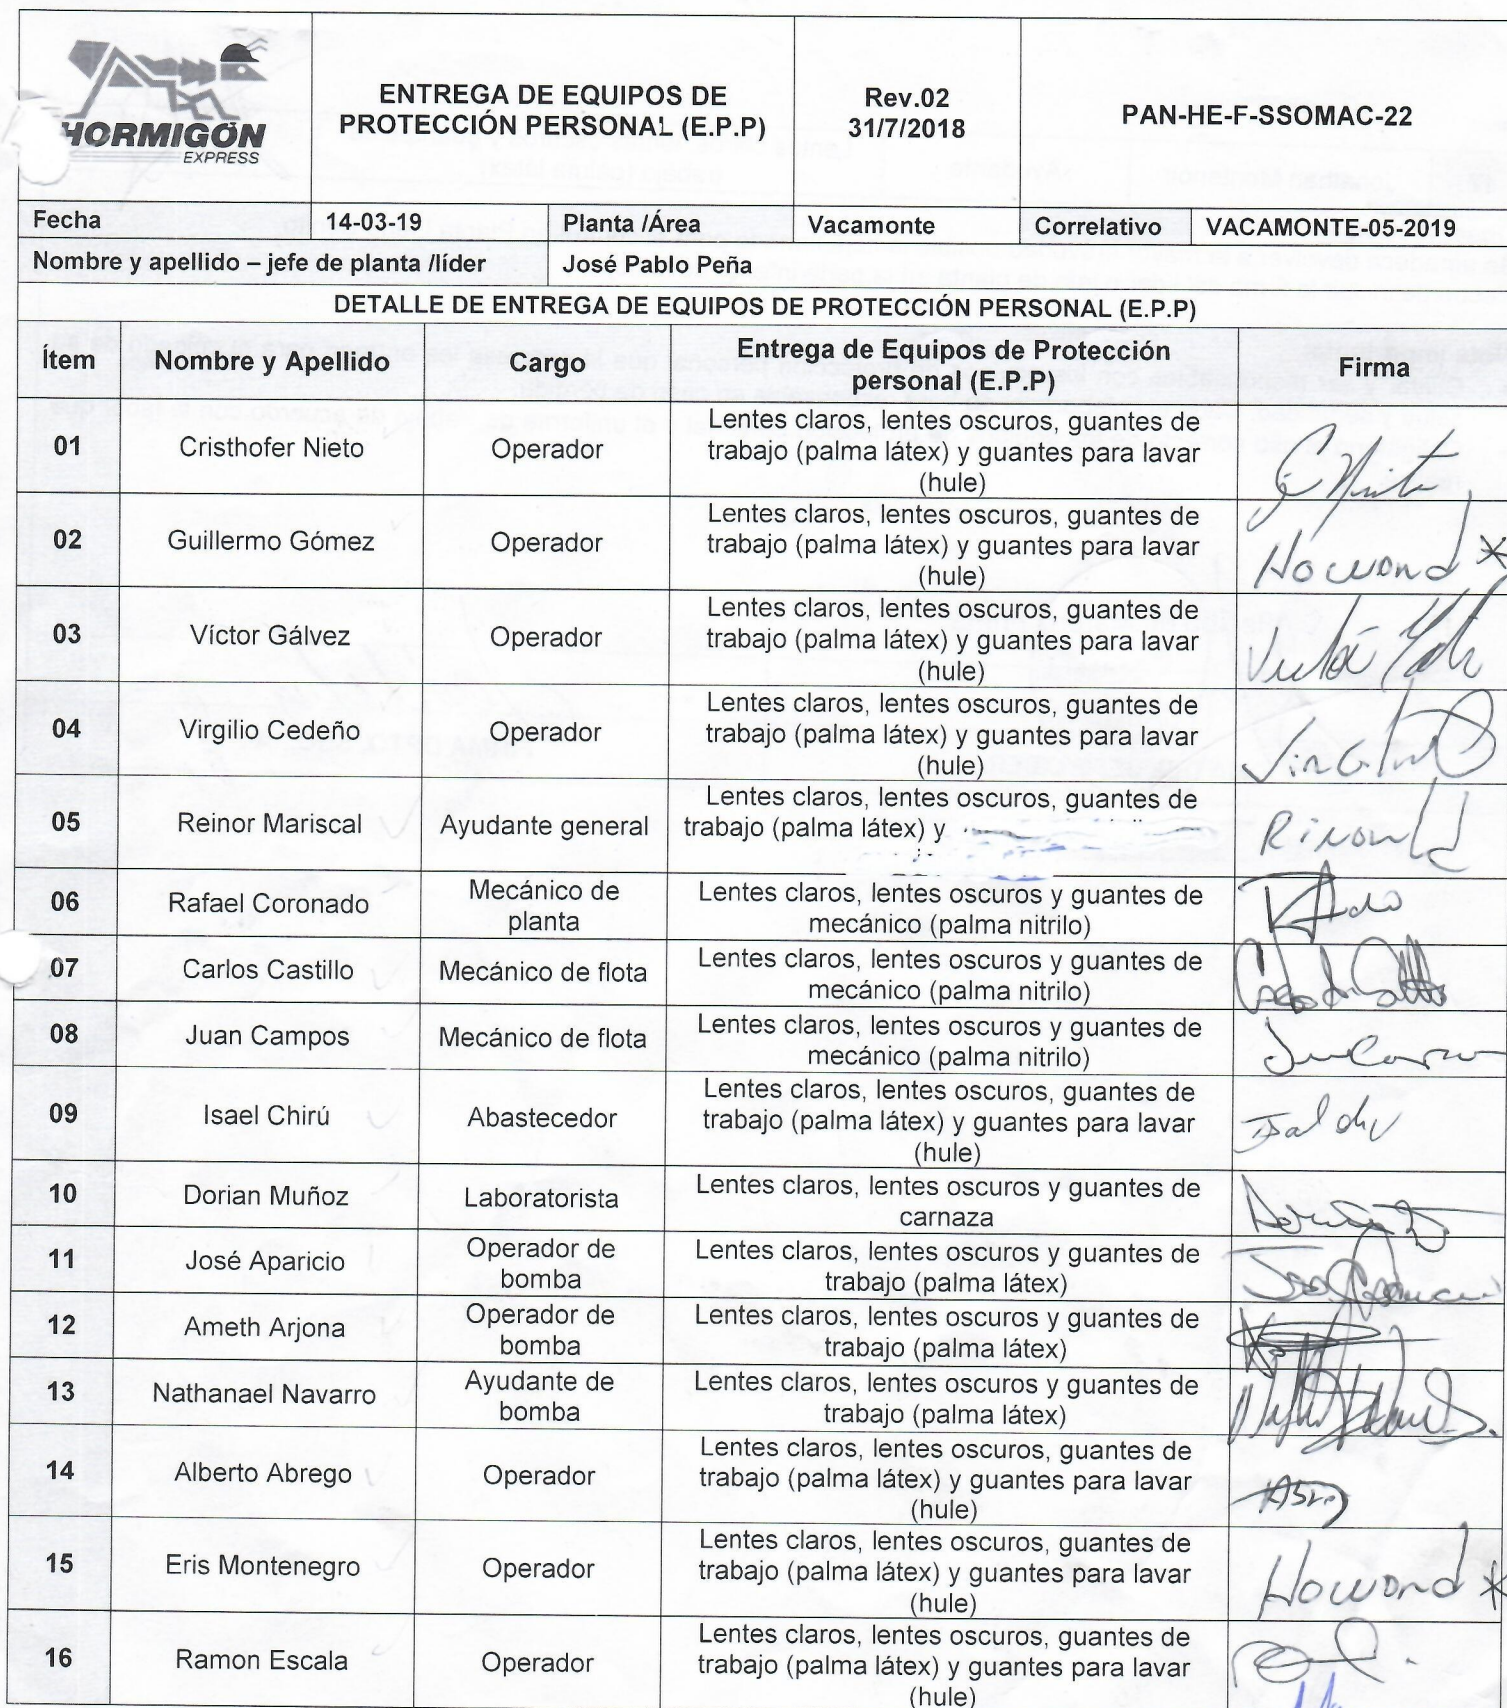 HORMIGÓN
EXPRESS
ENTREGA DE EQUIPOS DE
PROTECCIÓN PERSONAL (E.P.P)
Rev.02
31/7/2018
PAN-HE-F-SSOMAC-22
Fecha 14-03-19 Planta /Área Vacamonte Correlativo VACAMONTE-05-2019
Nombre y apellido – jefe de planta /líder José Pablo Peña
DETALLE DE ENTREGA DE EQUIPOS DE PROTECCIÓN PERSONAL (E.P.P)
Ítem Nombre y Apellido Cargo Entrega de Equipos de Protección
personal (E.P.P) Firma
01 Cristhofer Nieto Operador Lentes claros, lentes oscuros, guantes de
trabajo (palma látex) y guantes para lavar
(hule)
02 Guillermo Gómez Operador Lentes claros, lentes oscuros, guantes de
trabajo (palma látex) y guantes para lavar
(hule) Howard *
03 Víctor Gálvez Operador Lentes claros, lentes oscuros, guantes de
trabajo (palma látex) y guantes para lavar
(hule)
04 Virgilio Cedeño Operador Lentes claros, lentes oscuros, guantes de
trabajo (palma látex) y guantes para lavar
(hule)
05 Reinor Mariscal Ayudante general Lentes claros, lentes oscuros, guantes de
trabajo (palma látex) y
06 Rafael Coronado Mecánico de
planta Lentes claros, lentes oscuros y guantes de
mecánico (palma nitrilo)
07 Carlos Castillo Mecánico de flota Lentes claros, lentes oscuros y guantes de
mecánico (palma nitrilo)
08 Juan Campos Mecánico de flota Lentes claros, lentes oscuros y guantes de
mecánico (palma nitrilo)
09 Isael Chirú Abastecedor Lentes claros, lentes oscuros, guantes de
trabajo (palma látex) y guantes para lavar
(hule)
10 Dorian Muñoz Laboratorista Lentes claros, lentes oscuros y guantes de
carnaza
11 José Aparicio Operador de
bomba Lentes claros, lentes oscuros y guantes de
trabajo (palma látex)
12 Ameth Arjona Operador de
bomba Lentes claros, lentes oscuros y guantes de
trabajo (palma látex)
13 Nathanael Navarro Ayudante de
bomba Lentes claros, lentes oscuros y guantes de
trabajo (palma látex)
14 Alberto Abrego Operador Lentes claros, lentes oscuros, guantes de
trabajo (palma látex) y guantes para lavar
(hule)
15 Eris Montenegro Operador Lentes claros, lentes oscuros, guantes de
trabajo (palma látex) y guantes para lavar
(hule) Howard *
16 Ramon Escala Operador Lentes claros, lentes oscuros, guantes de
trabajo (palma látex) y guantes para lavar
(hule)